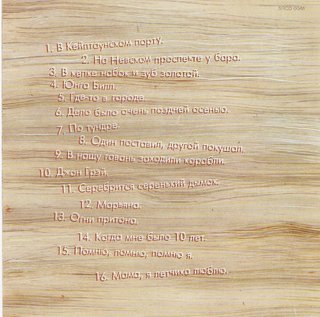 1. В Кейптаунском порту.
2. На Невском проспекте у бара.
3. В кепке набок и зуб золотой.
4. Юнга Билл.
5. Где-то в городе.
6. Дело было очень поздней осенью.
7. По тундре.
8. Один поставил, другой покушал.
9. В нашу гавань заходили корабли.
10. Джон Грэй.
11. Серебрится серенький дымок.
12. Марьяна.
13. Огни притона.
14. Когда мне было 10 лет.
15. Помню, помню, помню я.
16. Мама, я летчика люблю.